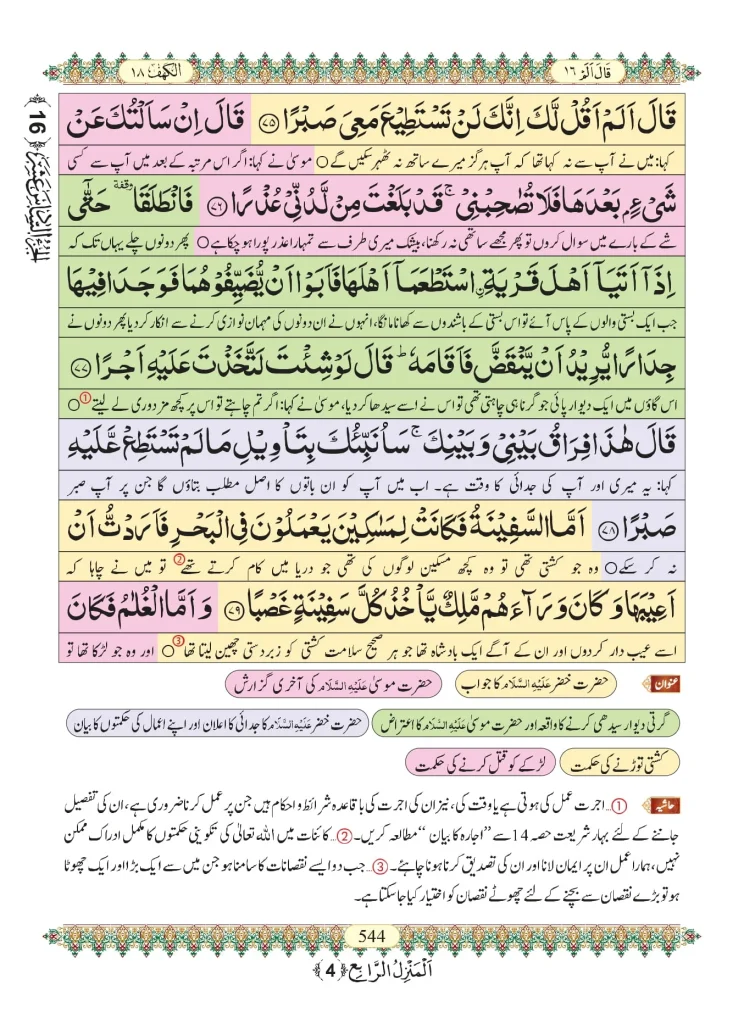 قَالَ اَلَمْ ١٦
الْكَهْفُ ١٨
16
قَالَ اَلَمْ اَقُلْ لَّكَ اِنَّكَ لَنْ تَسْتَطِیْعَ مَعِیَ صَبْرًا ﴿۷۵﴾ قَالَ اِنْ سَاَلْتُكَ عَنْ
کہا: میں نے آپ سے نہ کہا تھا کہ آپ ہرگز میرے ساتھ نہ ٹھہر سکیں گے ○ موسیٰ نے کہا: اگر اس مرتبہ کے بعد میں آپ سے کسی
شَیْءٍۭ بَعْدَهَا فَلَا تُصٰحِبْنِیْ ۚ قَدْ بَلَغْتَ مِنْ لَّدُنِّیْ عُذْرًا ﴿۷۶﴾ فَانْطَلَقَا ٝ وقفة حَتّٰۤى
شے کے بارے میں سوال کروں تو پھر مجھے ساتھی نہ رکھنا، بیشک میری طرف سے تمہارا عذر پورا ہو چکا ہے ○ پھر دونوں چلے یہاں تک کہ
اِذَاۤ اَتَیَاۤ اَهْلَ قَرْیَةِ ِ۟اسْتَطْعَمَاۤ اَهْلَهَا فَاَبَوْا اَنْ یُّضَیِّفُوْهُمَا فَوَجَدَا فِیْهَا
جب ایک بستی والوں کے پاس آئے تو اس بستی کے باشندوں سے کھانا مانگا، انہوں نے ان دونوں کی مہمان نوازی کرنے سے انکار کر دیا پھر دونوں نے
جِدَارًا یُّرِیْدُ اَنْ یَّنْقَضَّ فَاَقَامَهٗ ؕ قَالَ لَوْ شِئْتَ لَتَّخَذْتَ عَلَیْهِ اَجْرًا ﴿۷۷﴾
اس گاؤں میں ایک دیوار پائی جو گرنا ہی چاہتی تھی تو اس نے اسے سیدھا کر دیا، موسیٰ نے کہا: اگر تم چاہتے تو اس پر کچھ مزدوری لے لیتے ① ○
قَالَ هٰذَا فِرَاقُ بَیْنِیْ وَ بَیْنِكَ ۚ سَاُنَبِّئُكَ بِتَاْوِیْلِ مَا لَمْ تَسْتَطِعْ عَّلَیْهِ
کہا: یہ میری اور آپ کی جدائی کا وقت ہے۔ اب میں آپ کو ان باتوں کا اصل مطلب بتاؤں گا جن پر آپ صبر
صَبْرًا ﴿۷۸﴾ اَمَّا السَّفِیْنَةُ فَكَانَتْ لِمَسٰكِیْنَ یَعْمَلُوْنَ فِی الْبَحْرِ فَاَرَدْتُّ اَنْ
نہ کر سکے ○ وہ جو کشتی تھی تو وہ کچھ مسکین لوگوں کی تھی جو دریا میں کام کرتے تھے ② تو میں نے چاہا کہ
اَعِیْبَهَا وَ كَانَ وَرَآءَهُمْ مَّلِكٌ یَّاْخُذُ كُلَّ سَفِیْنَةٍ غَصْبًا ﴿۷۹﴾ وَ اَمَّا الْغُلٰمُ فَكَانَ
اسے عیب دار کردوں اور ان کے آگے ایک بادشاہ تھا جو ہر صحیح سلامت کشتی کو زبردستی چھین لیتا تھا ③ ○ اور وہ جو لڑکا تھا تو
عنوان حضرت خضر عَلَیْہِ السَّلَام کا جواب حضرت موسیٰ عَلَیْہِ السَّلَام کی آخری گزارش
گرتی دیوار سیدھی کرنے کا واقعہ اور حضرت موسیٰ عَلَیْہِ السَّلَام کا اعتراض حضرت خضر عَلَیْہِ السَّلَام کا جدائی کا اعلان اور اپنے اعمال کی حکمتوں کا بیان
کشتی توڑنے کی حکمت لڑکے کو قتل کرنے کی حکمت
حاشیہ ①... اجرت عمل کی ہوتی ہے یا وقت کی، نیز ان کی اجرت کی باقاعدہ شرائط و احکام ہیں جن پر عمل کرنا ضروری ہے، ان کی تفصیل
جاننے کے لئے بہار شریعت حصہ 14 سے ”اجارہ کا بیان“ مطالعہ کریں۔ ②... کائنات میں اللہ تعالٰی کی تکوینی حکمتوں کا مکمل ادراک ممکن
نہیں، ہمارا عمل ان پر ایمان لانا اور ان کی تصدیق کرنا ہونا چاہئے۔ ③... جب دو ایسے نقصانات کا سامنا ہو جن میں سے ایک بڑا اور ایک چھوٹا
ہو تو بڑے نقصان سے بچنے کے لئے چھوٹے نقصان کو اختیار کیا جاسکتا ہے۔
544
اَلْمَنْزِلُ الرَّابِع ﴿4﴾